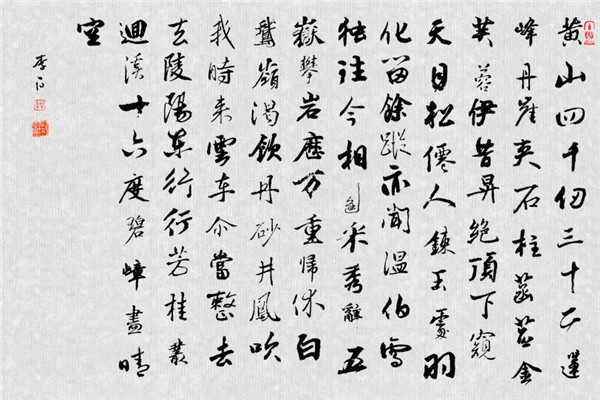 黄山四千仞三十二蓮
峰丹崖夹石柱菡萏金
芙蓉伊昔昇絶頂下窺
天目松僊人鍊玉處羽
化留餘蹤亦聞溫伯雪
独往今相逢采秀辭五
嶽攀岩歷万重歸休白
鵞嶺渴飲丹砂井鳳吹
我時来雲车尒當整去
去陵陽东行行芳桂叢
迴溪十六度碧嶂盡晴
空
李白